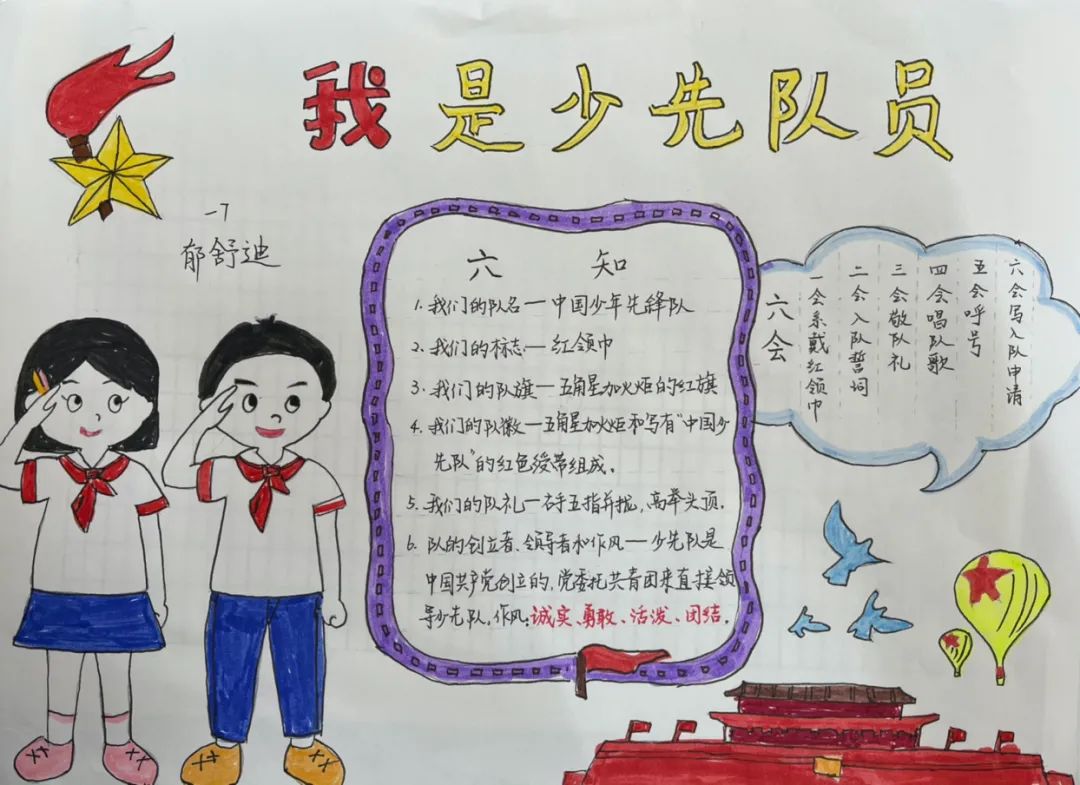 我是少先队员
一7
郁舒迪
六 知
1. 我们的队名—中国少年先锋队
2. 我们的标志—红领巾
3. 我们的队旗—五角星加火炬的红旗
4. 我们的队徽—五角星加火炬和写有"中国少
先队"的红色绶带组成。
5. 我们的队礼—右手五指并拢,高举头顶.
6. 队的创立者、领导者和作风—少先队是
中国共产党创立的,党委托共青团来直接领
导少先队。作风:诚实、勇敢、活泼、团结.
六会
一会系戴红领巾
二会入队誓词
三会敬队礼
四会唱队歌
五会呼号
六会写入队申请